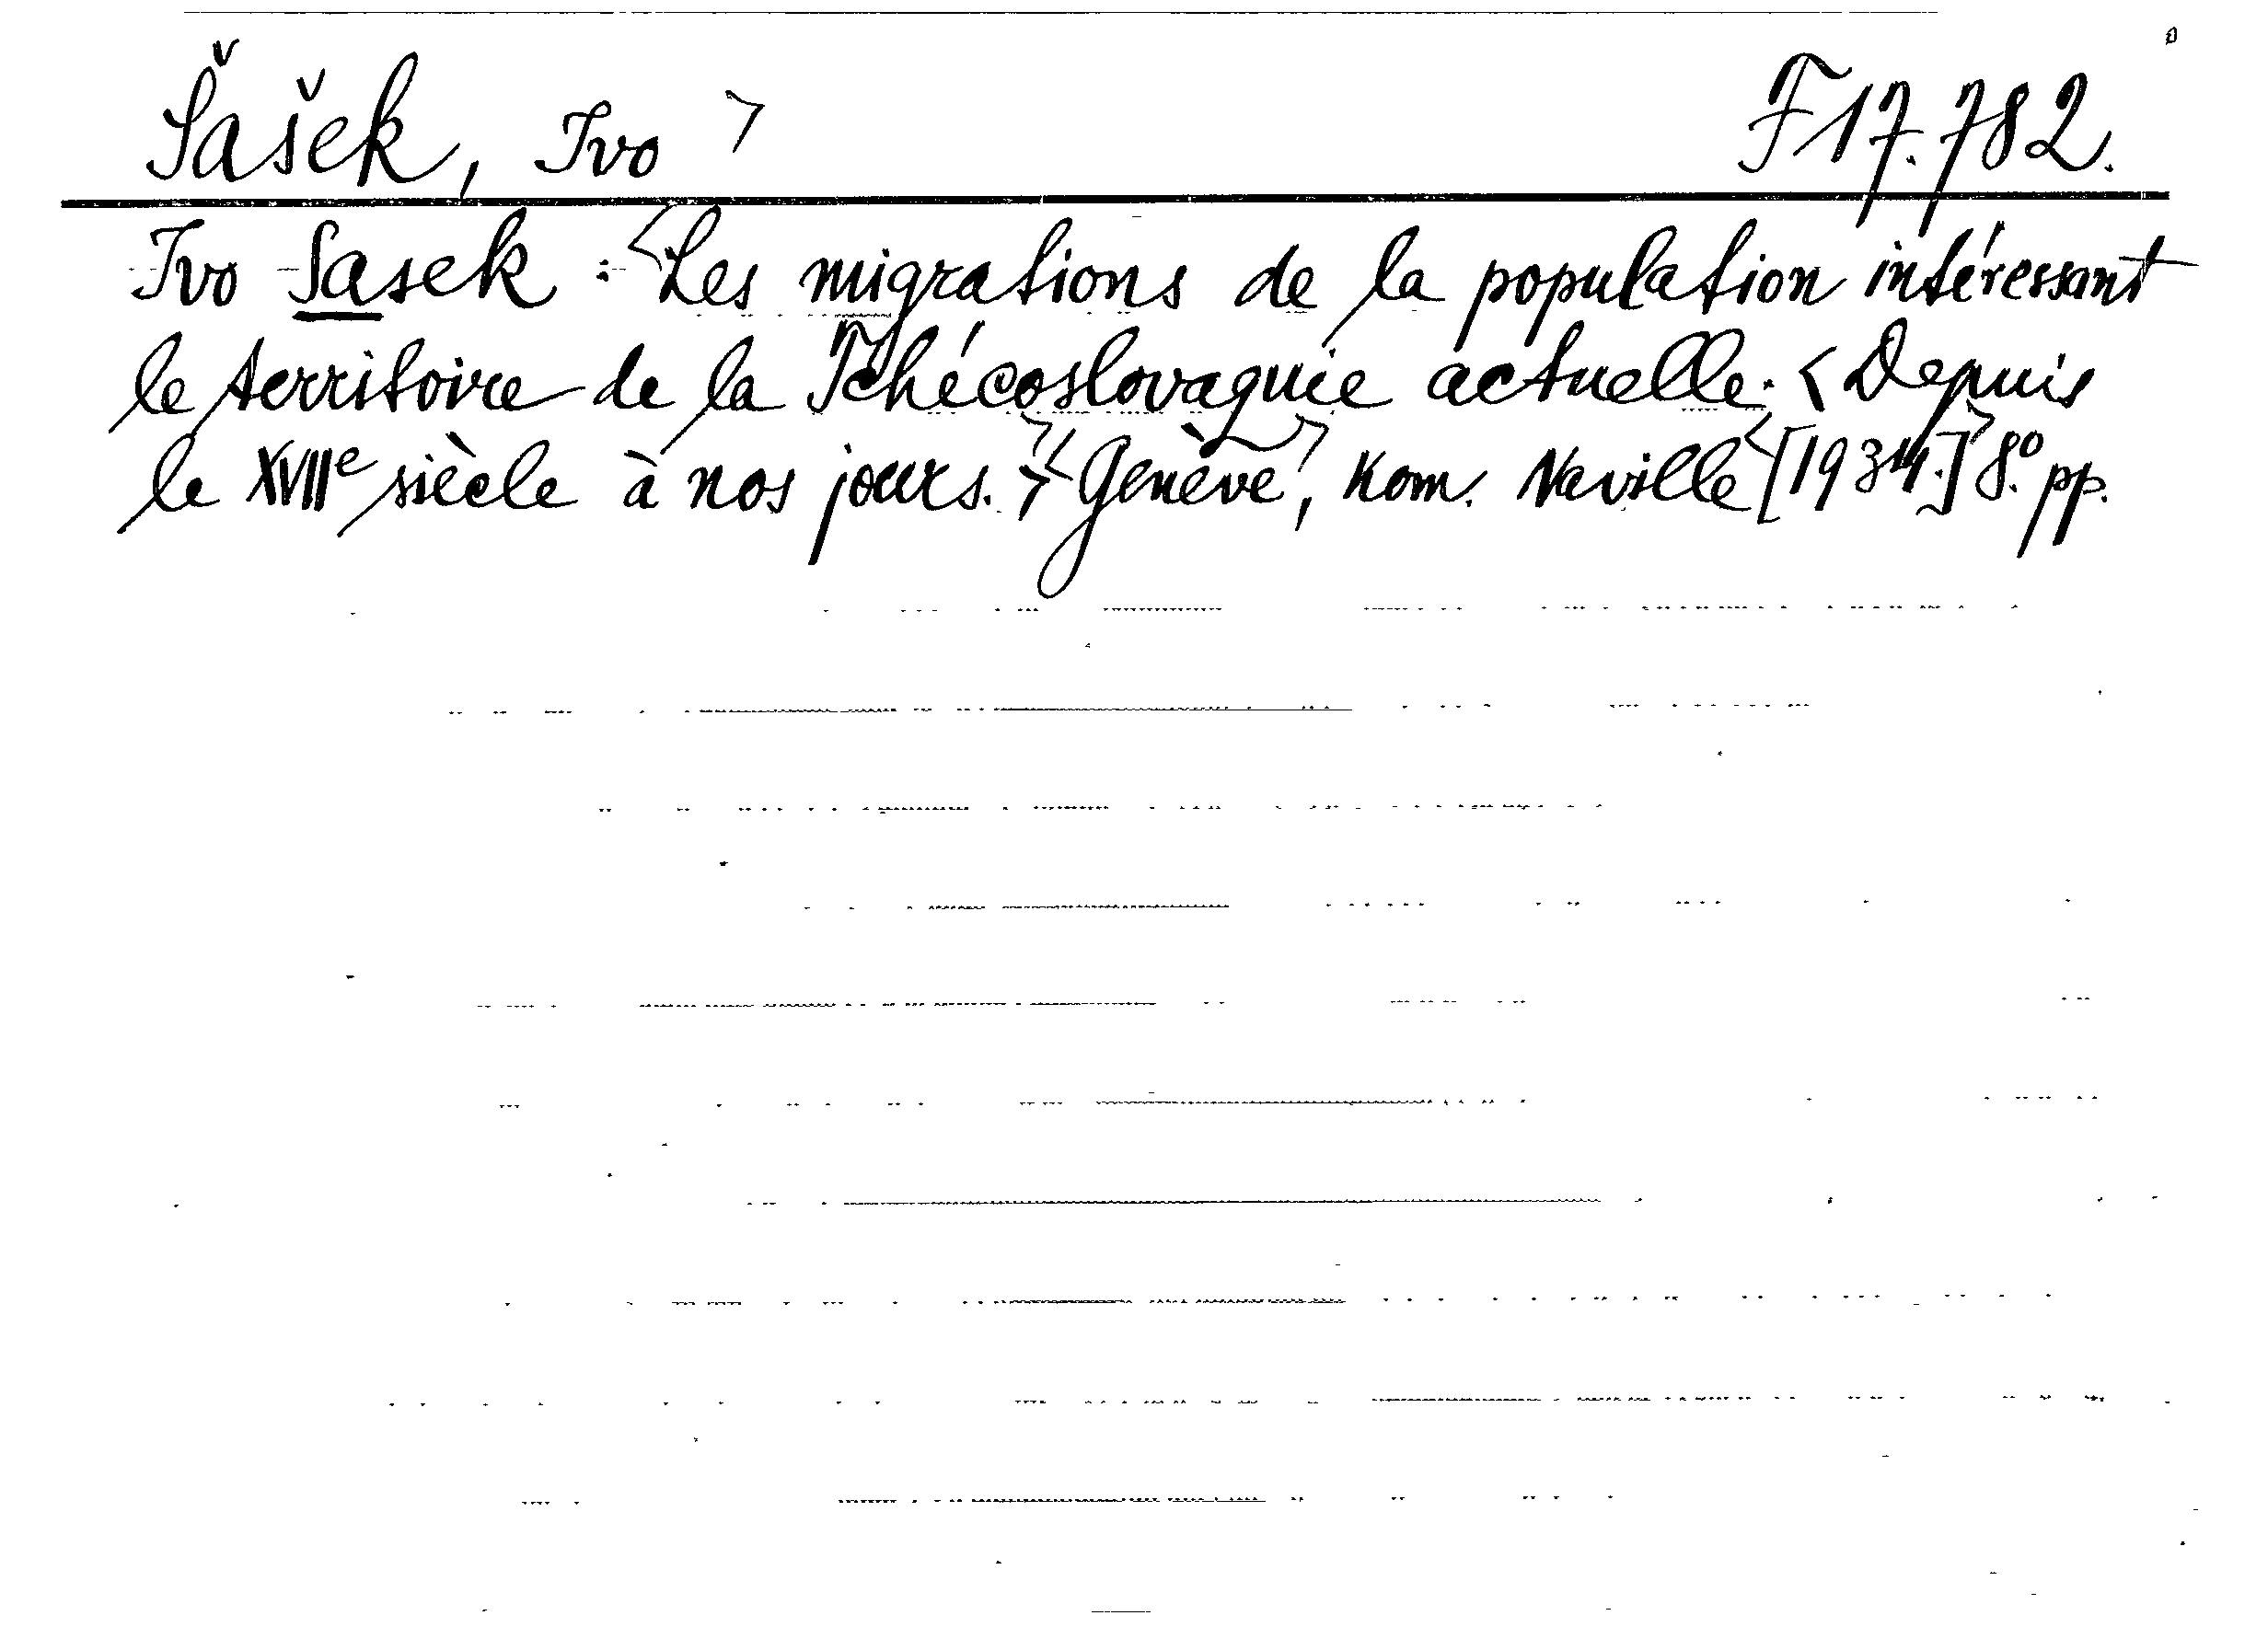 Šašek, Ivo F 17.782.
Ivo Sasek : Les migrations de la population intéressant
le territoire de la Tchécoslovaquie actuelle. < Depuis
le XVIIe siècle à nos jours. > Genève, Kom. Naville [1934.] 8.° pp.